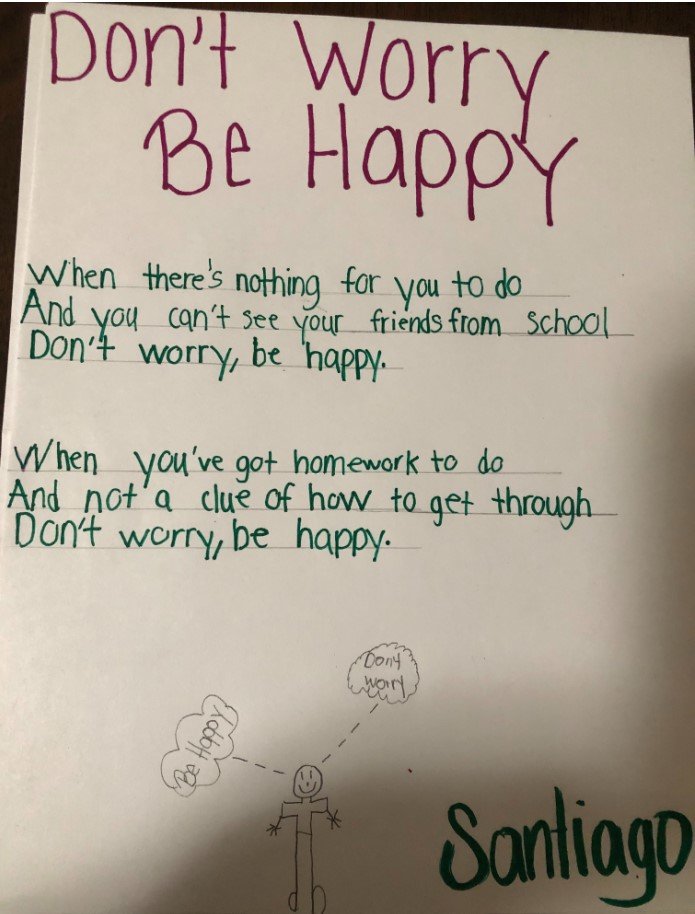 Don't Worry
Be Happy
When there's nothing for you to do
And you can't see your friends from school
Don't worry, be happy.
When you've got homework to do
And not a clue of how to get through
Don't worry, be happy.
Don't
worry
Be Happy
Santiago